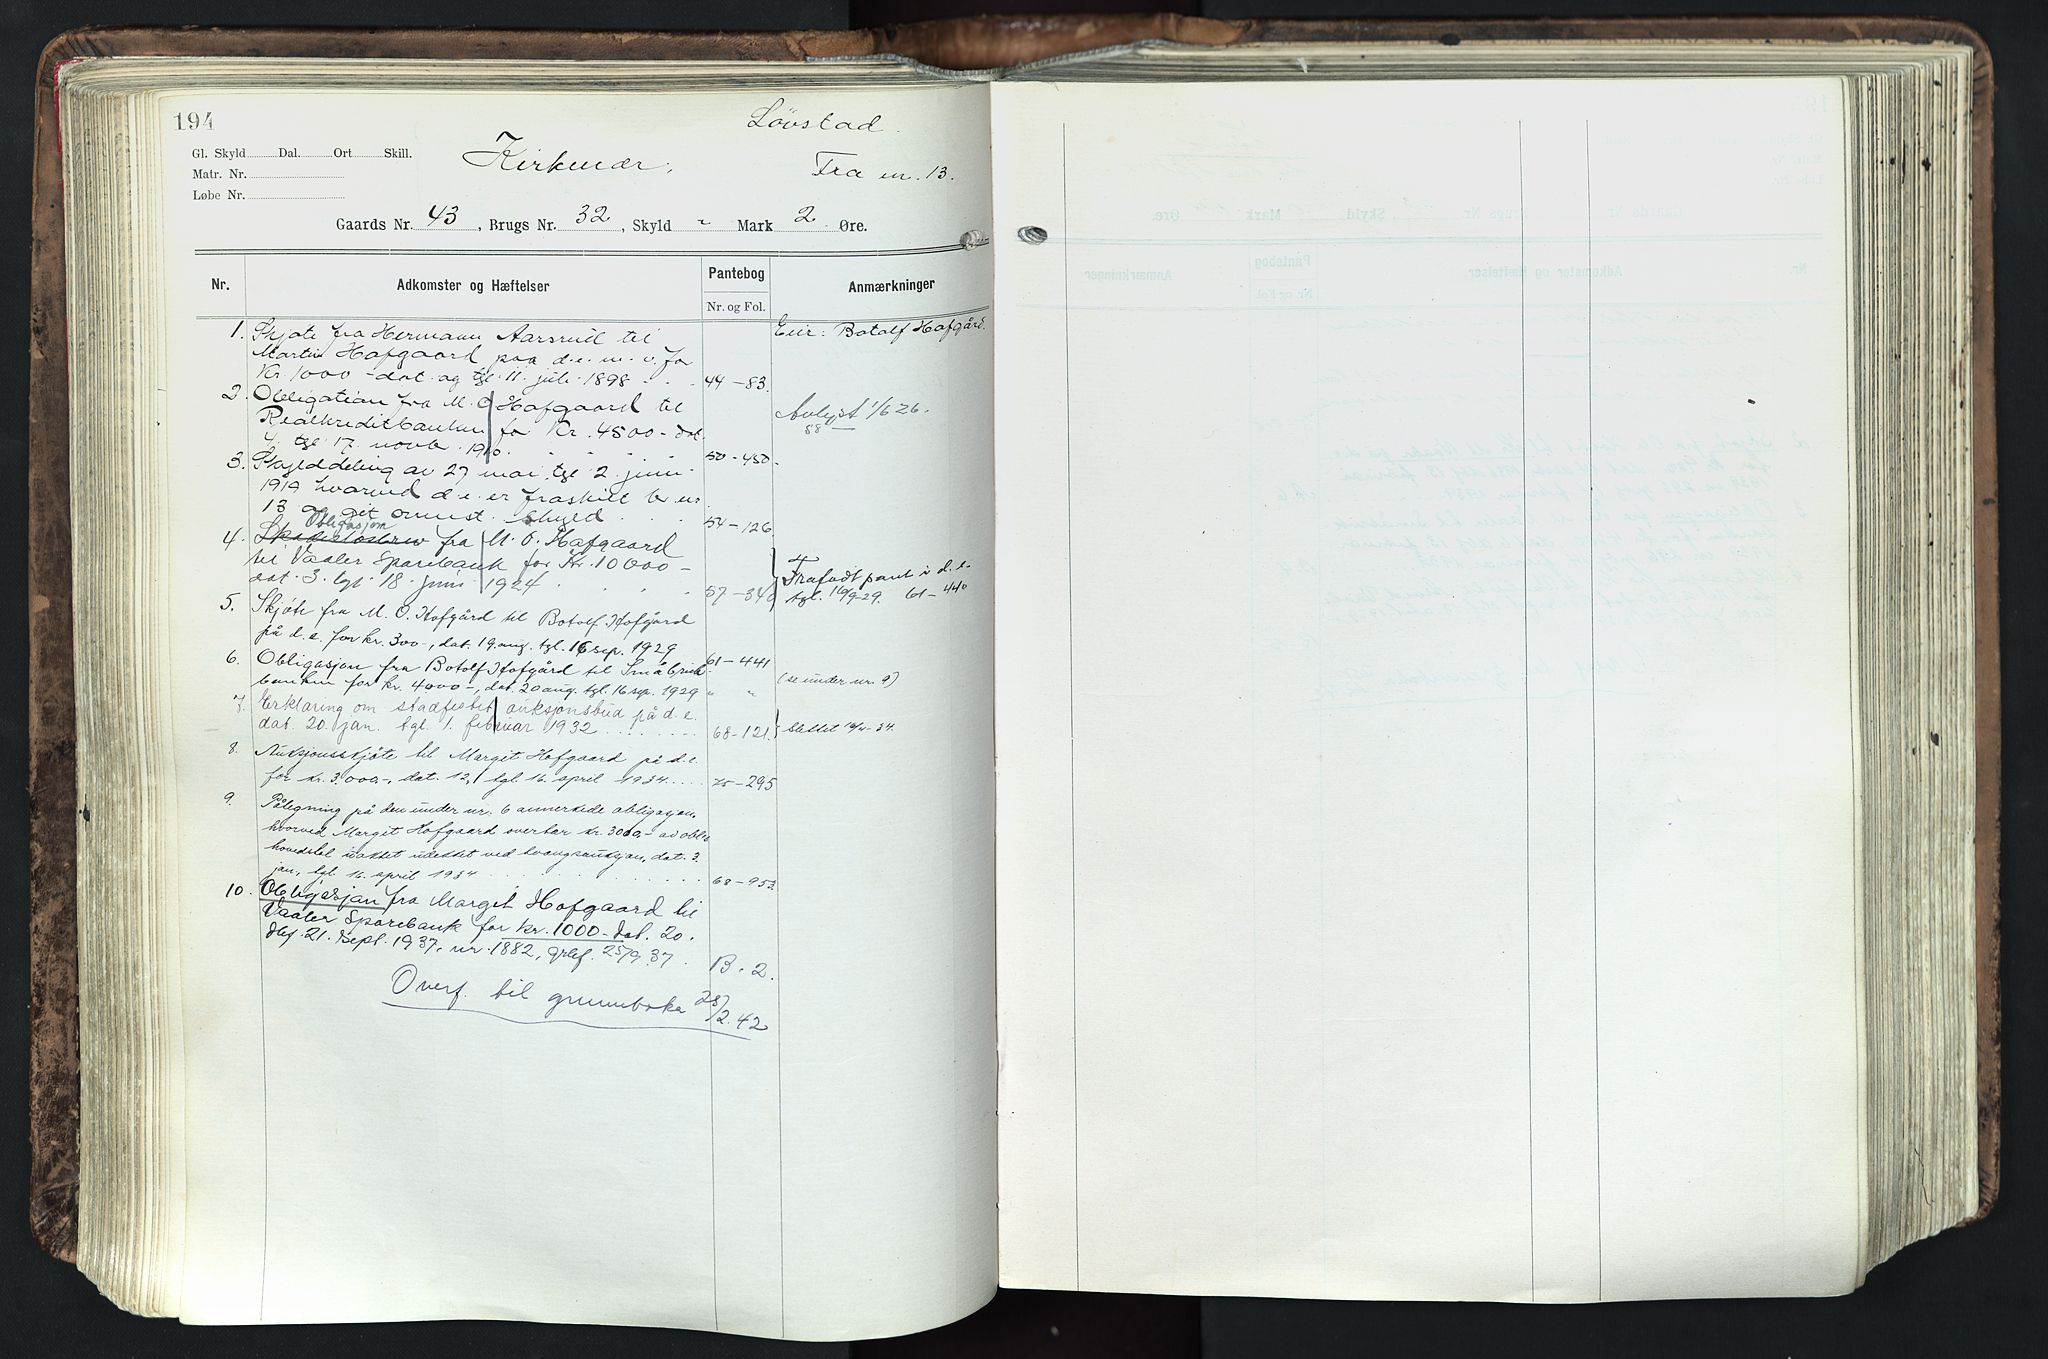 194
Løvstad
Gl. Skyld Dal. Ort Skill.
Kirkenær.
Fra nr. 13.
Matr. Nr.
Løbe Nr.
Gaards Nr. 43, Brugs Nr. 32, Skyld " Mark 2 Øre.
Nr. Adkomster og Hæftelser Pantebog Nr. og Fol. Anmærkninger
1. Skjøte fra Hermann Aarsrud til Eier: Botolf Hofgård.
Martin Hofgaard paa d.e. m. v. for
Kr. 1000 - dat. og tgl. 11. juli 1898 44-83.
2. Obligation fra M. O. Hofgaard til Avlyst 1/6 26.
Realkreditbanken for Kr. 4500 - dat.
4. tgl. 17. novbr. 1910. 50-450.
3. Skylddeling av 27 mai, tgl. 2. juni
1919 hvorved d.e. er fraskilt br. nr.
13 og git omst. skyld 54-126.
4. Skadesløsbrev Obligasjon fra M. O. Hofgaard
til Vaaler Sparebank for Kr. 10000 - Frafaldt pant i d.e.
dat. 3. tgl. 18. juni 1924 57-340 tgl. 16/9-29. 61-440
5. Skjøte fra M. O. Hofgård til Botolf Hofgård
på d.e. for kr. 300-, dat. 19. aug. tgl. 16 sep. 1929 61-441
6. Obligasjon fra Botolf Hofgård til Småbruk-
banken for kr. 4000-, dat. 20 aug. tgl. 16 sep. 1929 " " (se under nr. 9)
7. Erklæring om stadfestet auksjonsbud på d.e.
dat. 20. jan. tgl. 1. februar 1932 68-121. slettet 16/4-34.
8. Auksjonsskjøte til Margit Hofgaard på d.e.
for kr. 3.000-, dat. 12, tgl. 16. april 1934 75-295
9. Påtegning på den under nr. 6 anmerkede obligasjon,
hvorved Margit Hofgaard overtar kr. 3000,- av obl.s
hovedstol istedet udekket ved tvangsauksjon, dat. 3.
jan., tgl. 16. april 1934 68-953.
10. Obligasjon fra Margit Hofgaard til
Vaaler Sparebank for kr. 1000 - dat. 20.
dbf. 21. sept. 1937, nr. 1882, grbf. 25/9 37. B. 2.
Overf. til grunnboka 28/2.42